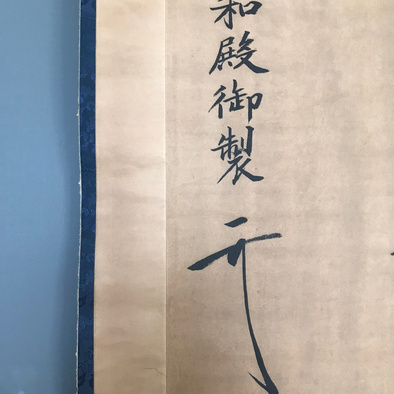 和殿御製